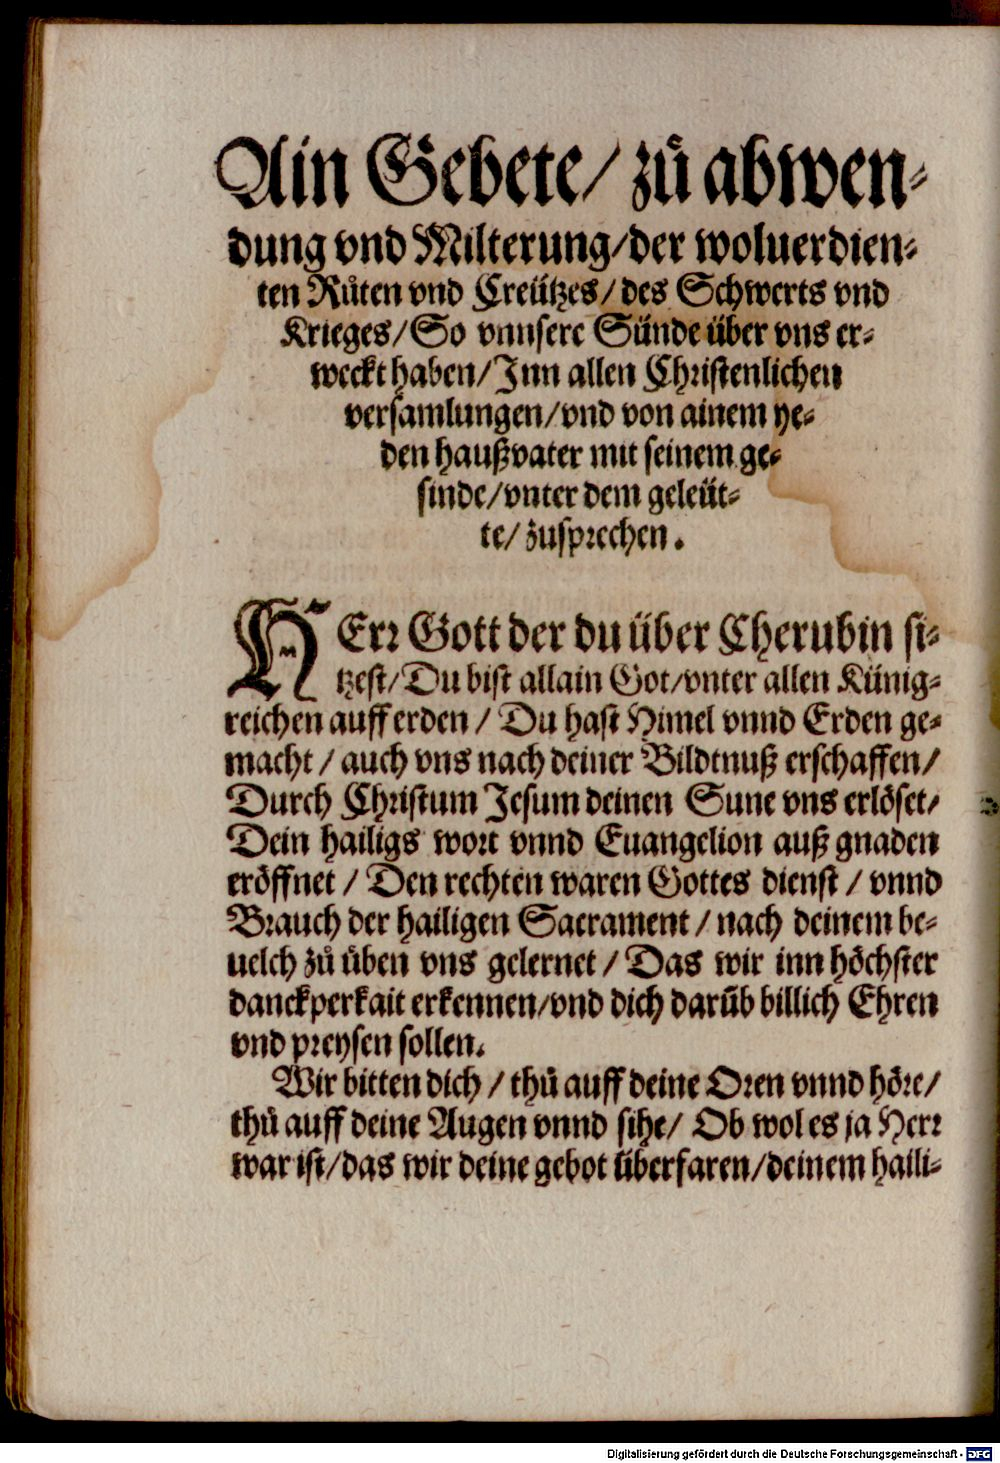 Ain Gebete/ zů abwen-
dung vnd Milterung/der woluerdien-
ten Růten vnd Creützes/ des Schwerts vnd
Krieges/ So vnnsere Sünde über vns er-
weckt haben/ Jnn allen Christenlichen
versamlungen/ vnd von ainem ye-
den haußvater mit seinem ge-
sinde/vnter dem geleüt-
te/ zusprechen.
HErr Gott der du über Cherubin si-
tzest/ Du bist allain Got/vnter allen Künig-
reichen auff erden / Du hast Himel vnnd Erden ge-
macht / auch vns nach deiner Bildtnuß erschaffen/
Durch Christum Jesum deinen Sune vns erlöset/
Dein hailigs wort vnnd Euangelion auß gnaden
eröffnet / Den rechten waren Gottes dienst / vnnd
Brauch der hailigen Sacrament / nach deinem be-
uelch zů üben vns gelernet / Das wir inn höchster
danckperkait erkennen/vnd dich darüb billich Ehren
vnd preysen sollen.
Wir bitten dich / thů auff deine Oren vnnd höre/
thů auff deine Augen vnnd sihe/ Ob wol es ja Herr
war ist/das wir deine gebot überfaren/deinem haili-
Digitalisierung gefördert durch die Deutsche Forschungsgemeinschaft - DFG